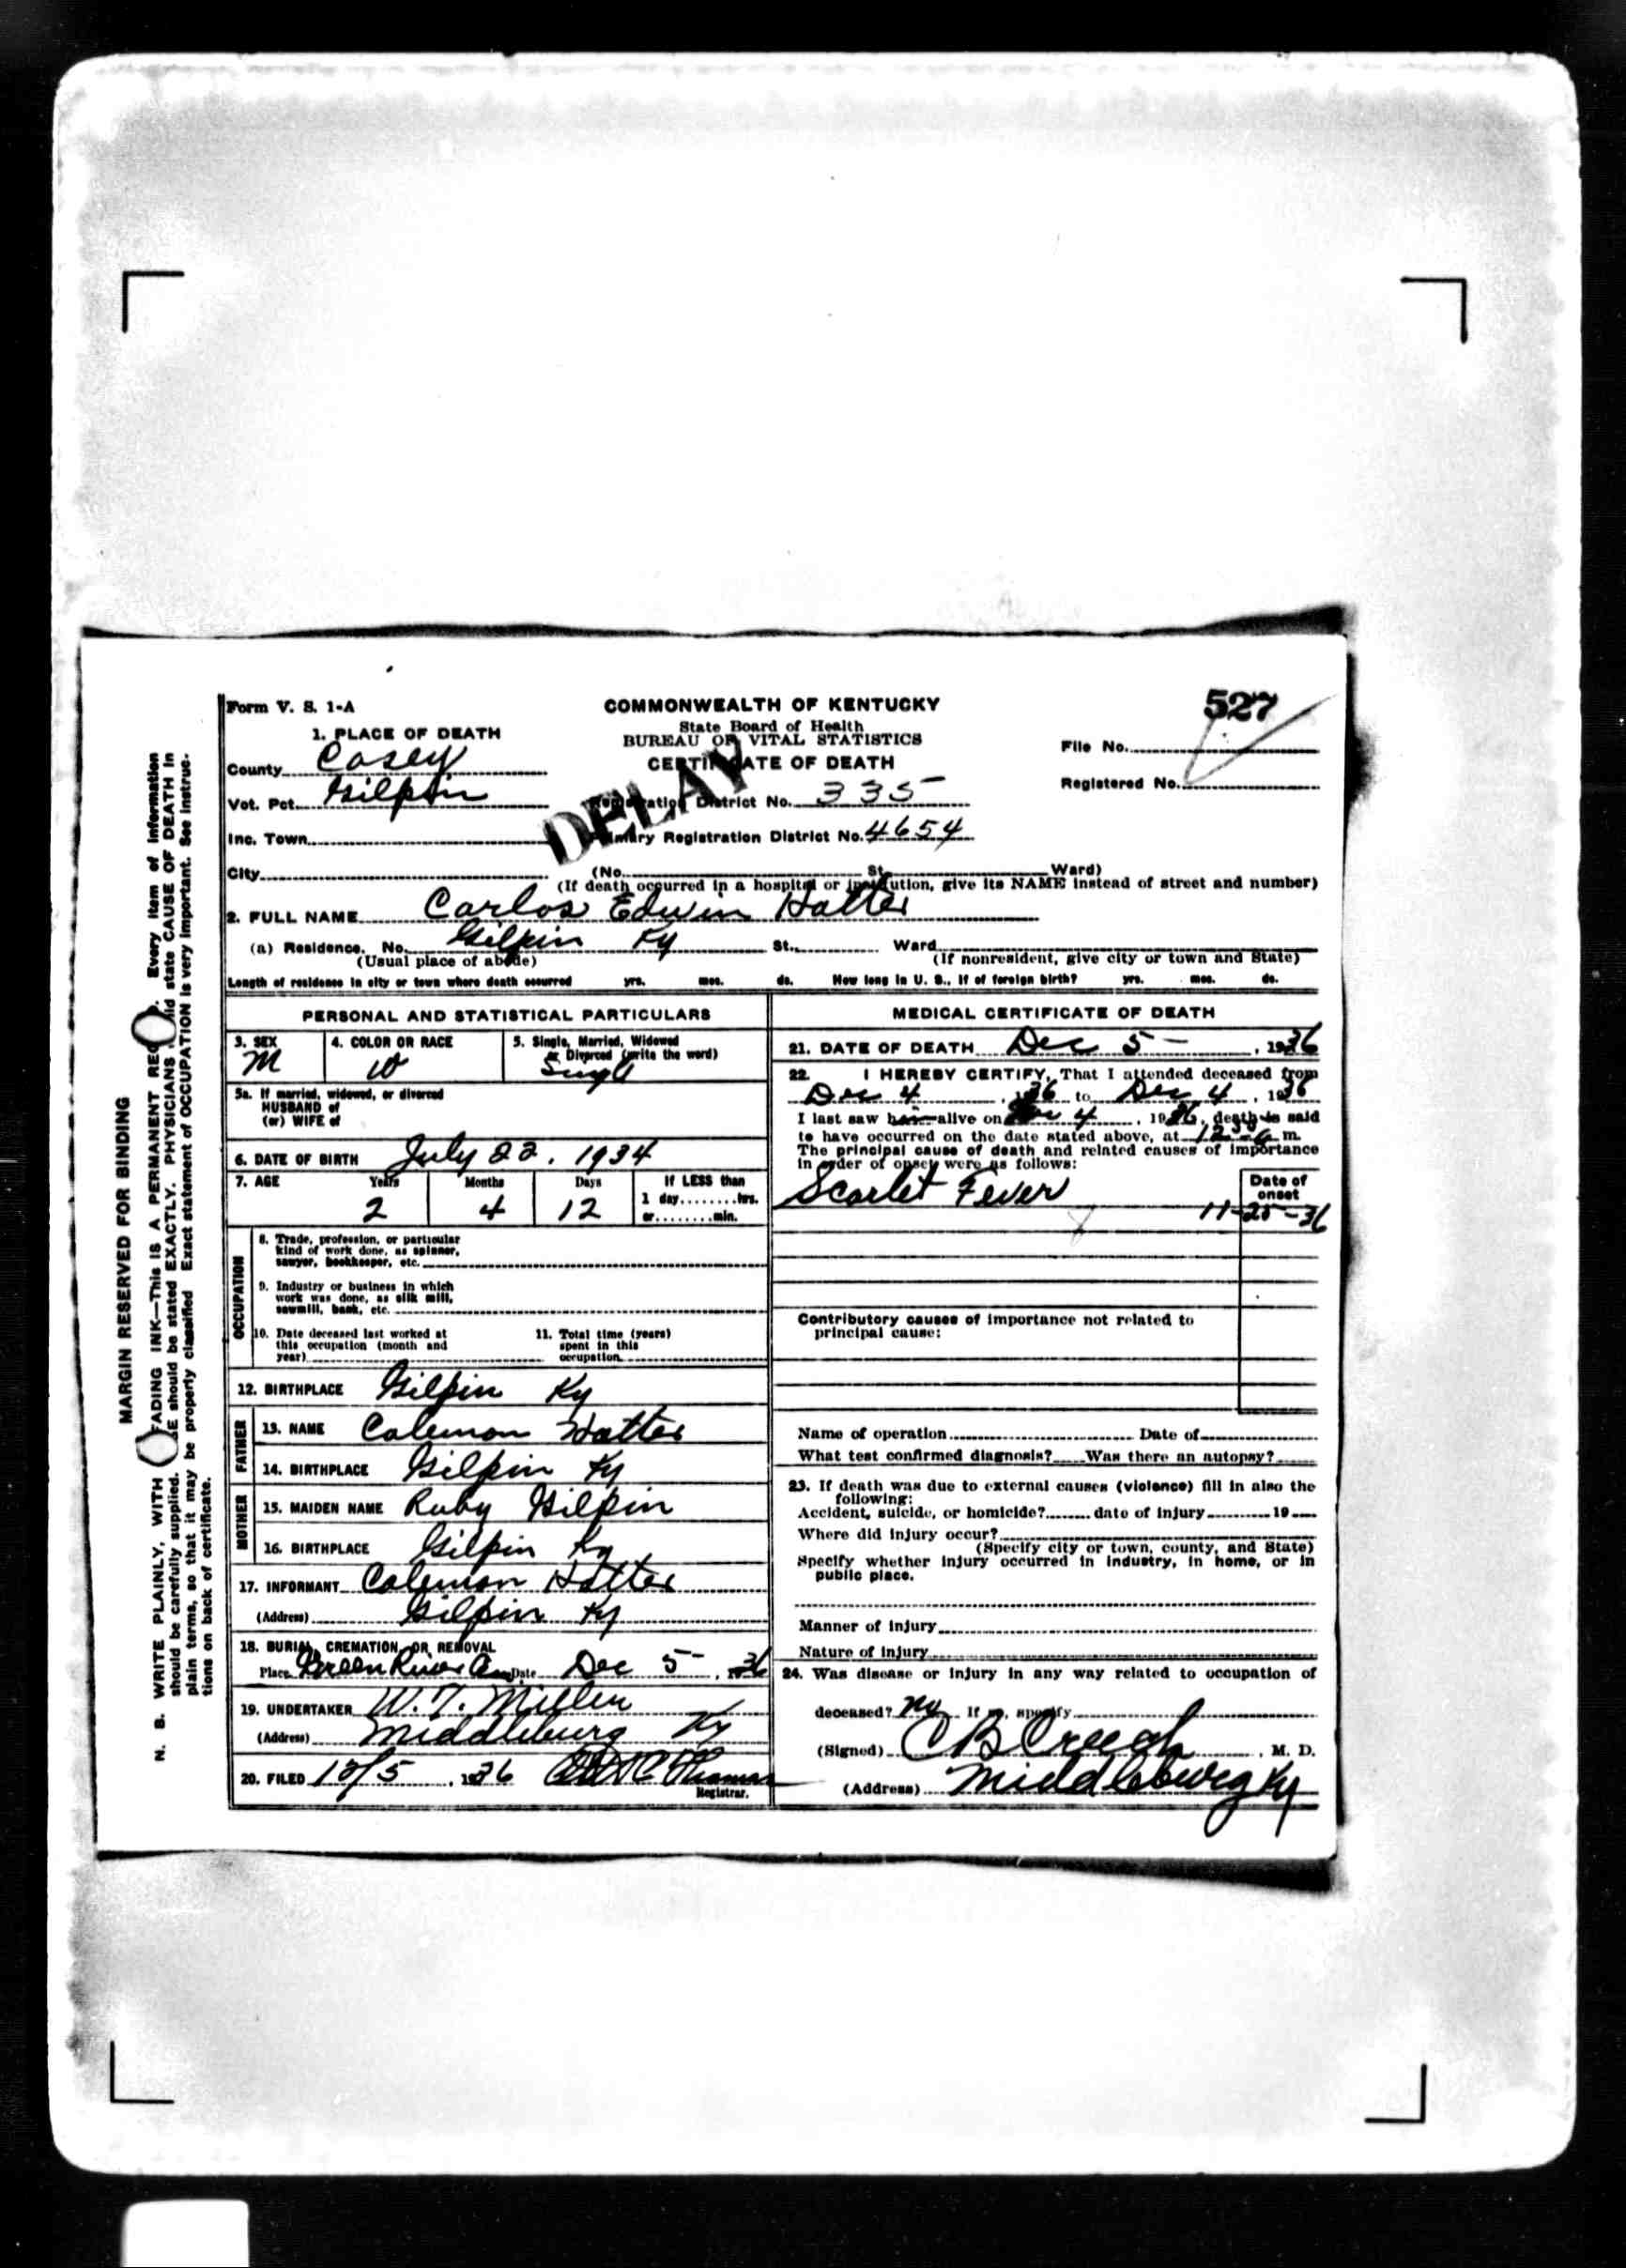 Form V. S. 1-A
COMMONWEALTH OF KENTUCKY
State Board of Health
BUREAU OF VITAL STATISTICS
CERTIFICATE OF DEATH
527
File No.
Registered No.
DELAY
1. PLACE OF DEATH
County Casey
Vot. Pct. Gilpin
Registration District No. 335
Inc. Town
Primary Registration District No. 4654
City (No. St. Ward)
(If death occurred in a hospital or institution, give its NAME instead of street and number)
2. FULL NAME Carlos Edwin Hatter
(a) Residence. No. Gilpin Ky St. Ward
(Usual place of abode) (If nonresident, give city or town and State)
Length of residence in city or town where death occurred yrs. mos. ds. How long in U. S., if of foreign birth? yrs. mos. ds.
PERSONAL AND STATISTICAL PARTICULARS
3. SEX M
4. COLOR OR RACE W
5. Single, Married, Widowed
or Divorced (write the word)
Single
5a. If married, widowed, or divorced
HUSBAND of
(or) WIFE of
6. DATE OF BIRTH July 22, 1934
7. AGE Years Months Days If LESS than
1 day........hrs.
2 4 12 or........min.
OCCUPATION
8. Trade, profession, or particular
kind of work done, as spinner,
sawyer, bookkeeper, etc.
9. Industry or business in which
work was done, as silk mill,
sawmill, bank, etc.
10. Date deceased last worked at
this occupation (month and
year)
11. Total time (years)
spent in this
occupation
12. BIRTHPLACE Gilpin Ky
FATHER
13. NAME Coleman Hatter
14. BIRTHPLACE Gilpin Ky
MOTHER
15. MAIDEN NAME Ruby Gilpin
16. BIRTHPLACE Gilpin Ky
17. INFORMANT Coleman Hatter
(Address) Gilpin Ky
18. BURIAL, CREMATION, OR REMOVAL
Place Green River Date Dec 5 - , 1936
19. UNDERTAKER W. T. Miller
(Address) Middleburg Ky
20. FILED 12/5, 1936 Thomas
Registrar.
MEDICAL CERTIFICATE OF DEATH
21. DATE OF DEATH Dec 5 - , 1936
22. I HEREBY CERTIFY, That I attended deceased from
Dec 4, 1936 to Dec 4, 1936
I last saw him alive on Dec 4, 1936, death is said
to have occurred on the date stated above, at 12 a m.
The principal cause of death and related causes of importance
in order of onset were as follows:
Date of
onset
Scarlet Fever 11-25-36
Contributory causes of importance not related to
principal cause:
Name of operation Date of
What test confirmed diagnosis? Was there an autopsy?
23. If death was due to external causes (violence) fill in also the
following:
Accident, suicide, or homicide? date of injury 19
Where did injury occur?
(Specify city or town, county, and State)
Specify whether injury occurred in industry, in home, or in
public place.
Manner of injury
Nature of injury
24. Was disease or injury in any way related to occupation of
deceased? No If so, specify
(Signed) C B Creech, M. D.
(Address) Middleburg Ky
MARGIN RESERVED FOR BINDING
N. B. WRITE PLAINLY, WITH FADING INK—This IS A PERMANENT REC Every item of information
should be carefully supplied. should be stated EXACTLY. PHYSICIANS state CAUSE OF DEATH in
plain terms, so that it may be properly classified Exact statement of OCCUPATION is very important. See instruc-
tions on back of certificate.